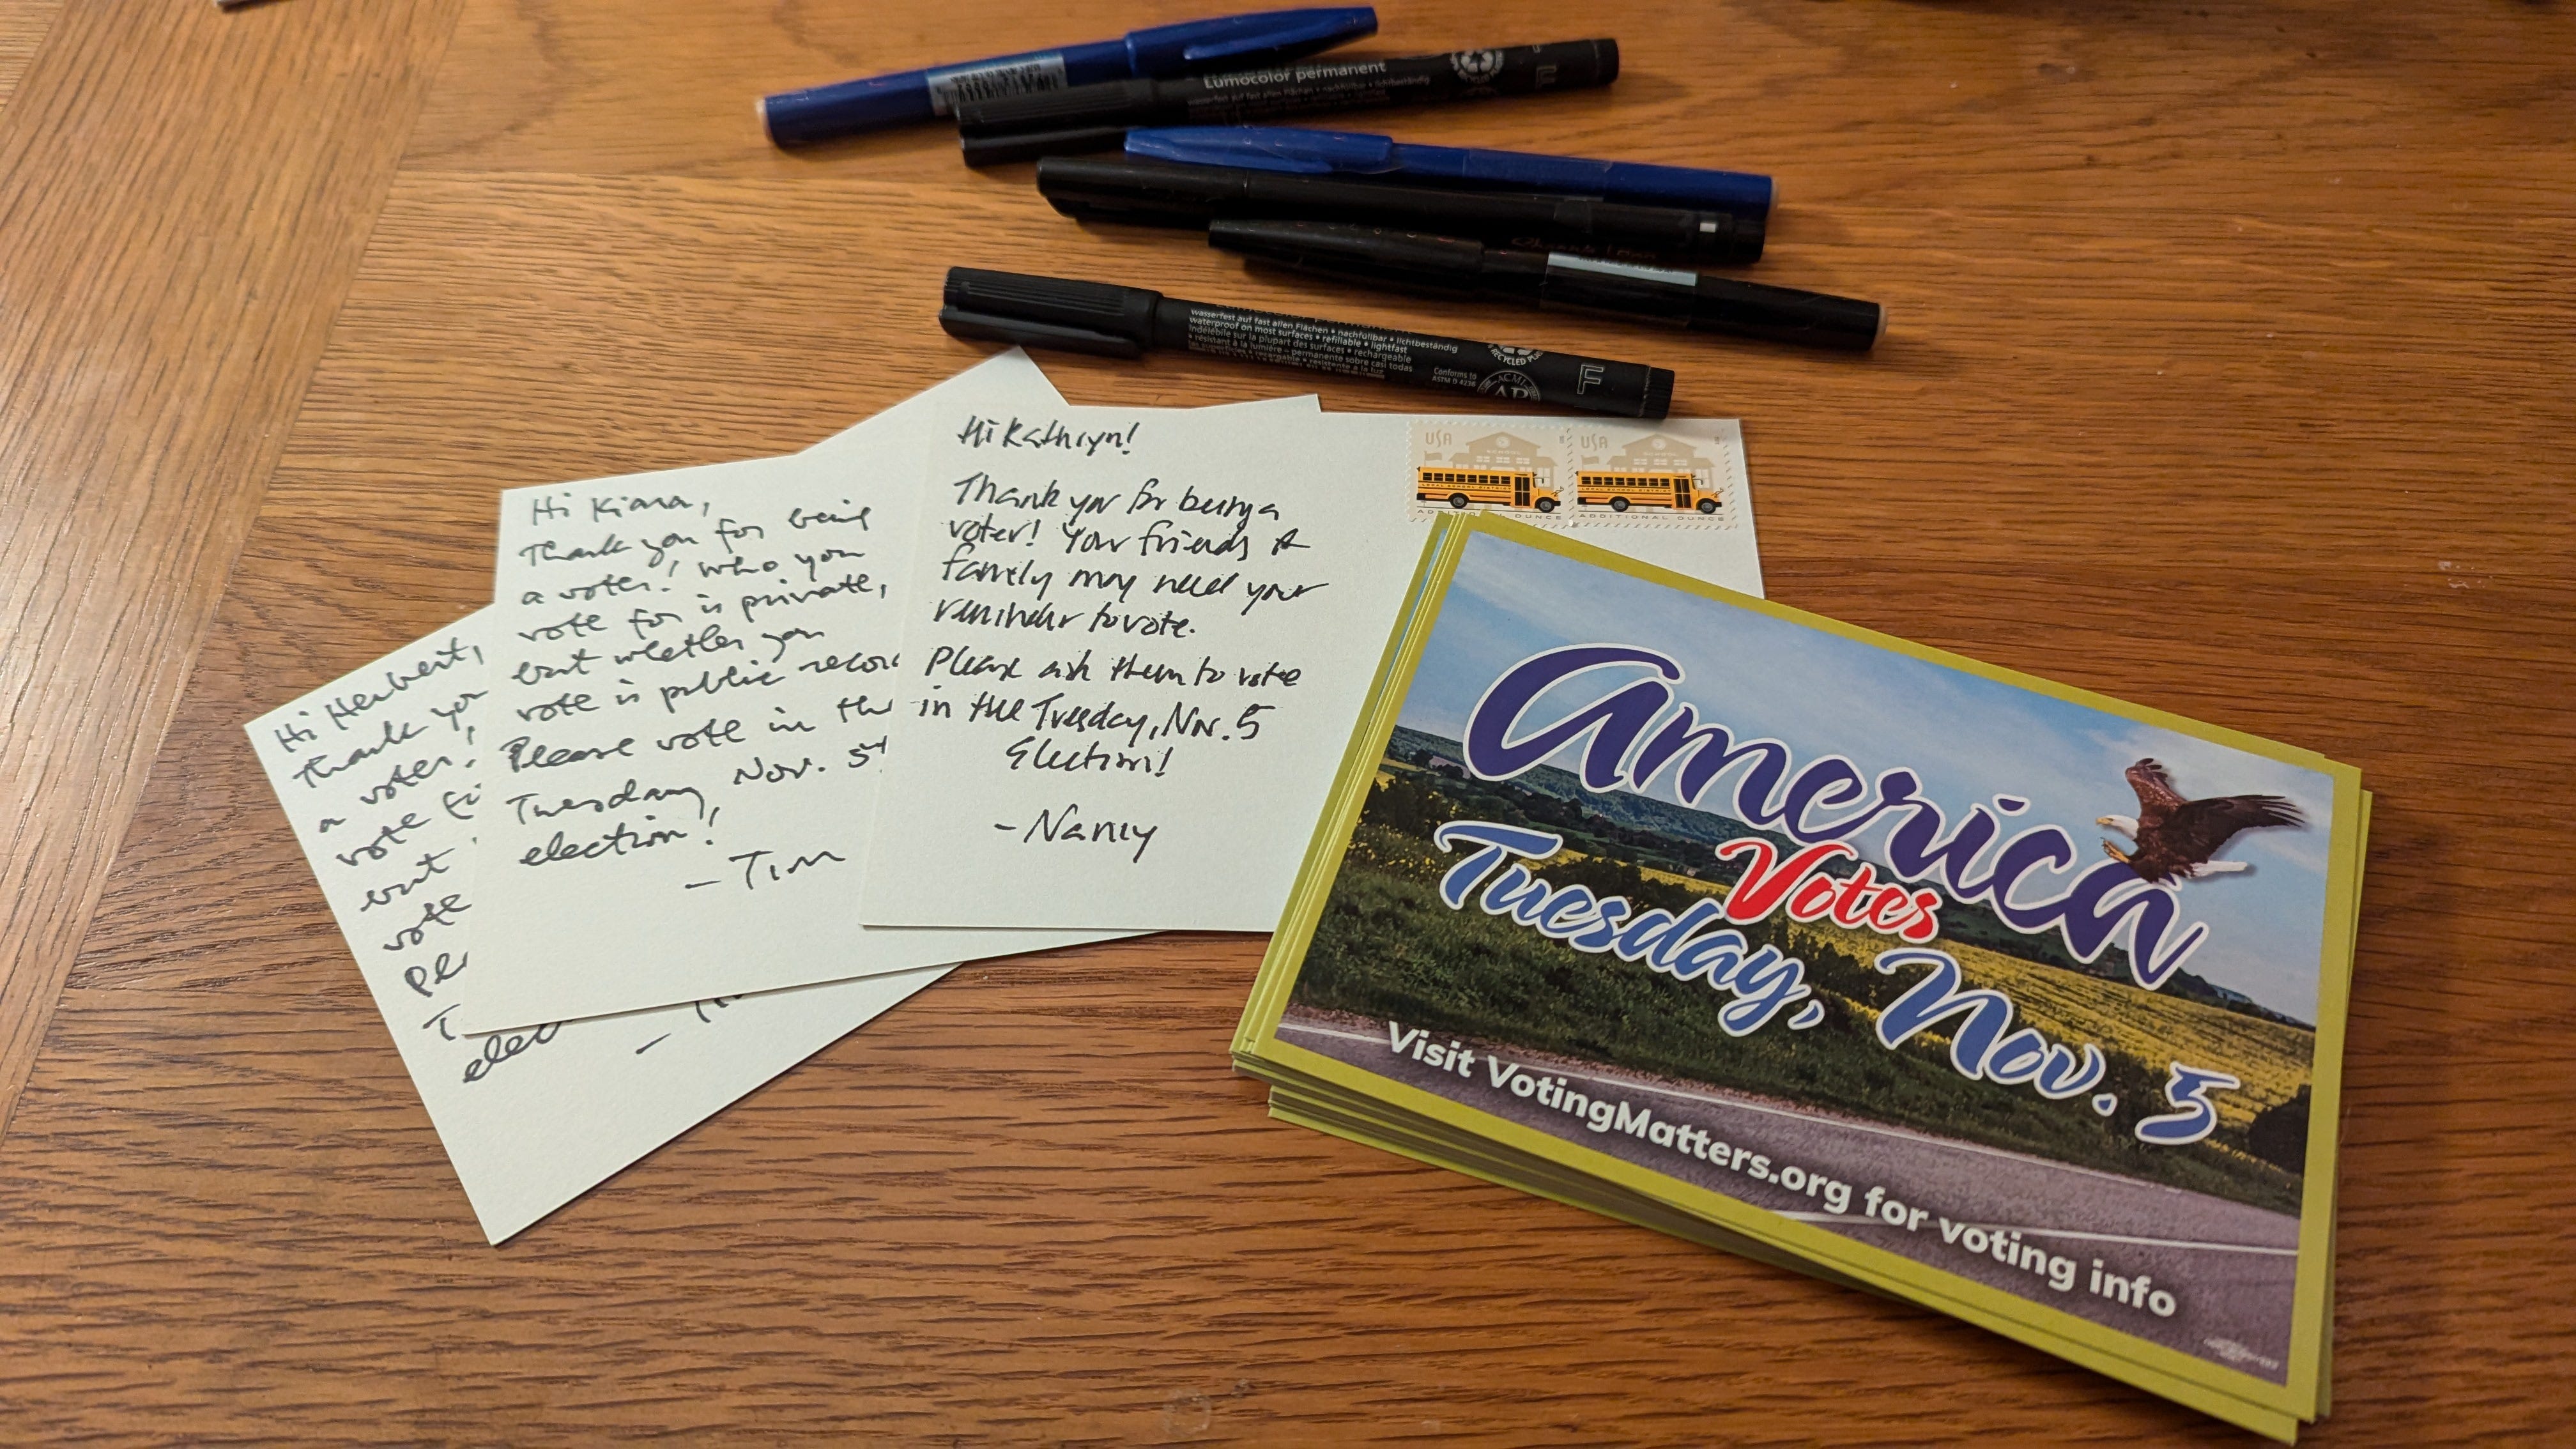 Lumocolor permanent
wasserfest auf fast allen Flächen • nachfüllbar • lichtbeständig
F
wasserfest auf fast allen Flächen • nachfüllbar • lichtbeständig
waterproof on most surfaces • refillable • lightfast
indélébile sur la plupart des surfaces • rechargeable
• résistant à la lumière – permanente sobre casi todas
Conforms to
ASTM D 4236
RECYCLED
ACMI
AP
F
Hi Herbert,
Thank you
a voter!
vote
but
vote
T
elec
Hi Kiana,
Thank you for being
a voter! Who you
vote for is private,
but whether you
vote is public recor
Please vote in the
Tuesday, Nov. 5th
election!
- Tim
Hi Kathryn!
Thank you for being a
voter! Your friends &
family may need your
reminder to vote.
Please ask them to vote
in the Tuesday, Nov. 5
Election!
- Nancy
USA
SCHOOL
LOCAL SCHOOL DISTRICT
OUNCE
USA
SCHOOL
LOCAL SCHOOL DISTRICT
ADDITIONAL OUNCE
America
Votes
Tuesday, Nov. 5
Visit VotingMatters.org for voting info